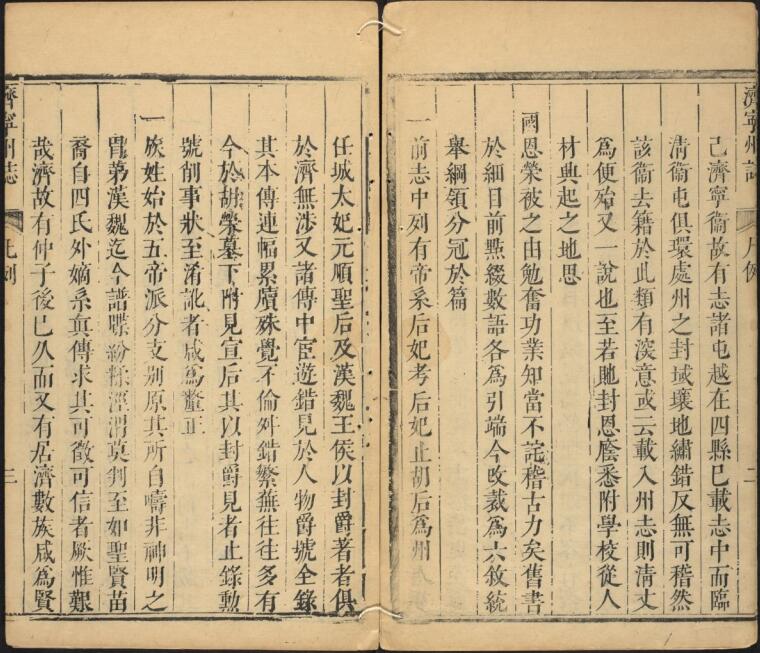 濟寧州志 凡例 二
己濟寧衞故有志諸屯越在四縣已載志中而臨
清衞屯俱環處州之封域壤地繡錯反無可稽然
該衞去籍於此類有深意或云載入州志則清丈
為便殆又一說也至若貤封恩廕悉附學校從人
材典起之地思
國恩榮被之由勉奮功業知當不詫稽古力矣舊書
於細目前點綴數語各為引端今改裁為六敘統
舉綱領分冠於篇
一前志中列有帝系后妃考后妃止胡后為州
任城太妃元順聖后及漢魏王侯以封爵著者俱
於濟無涉又諸傳中宦遊錯見於人物爵號全錄
其本傳連幅累牘殊覺不倫舛錯繁蕪往往多有
今於胡榮墓下附見宣后其以封爵見者止錄勳
號削事狀至淆訛者咸為釐正
一族姓始於五帝派分支別原其所自疇非神明之
胄第漢魏迄今譜牒紛糅涇渭莫判至如聖賢苗
裔自四氏外嫡系真傳求其可徵可信者厥惟艱
哉濟故有仲子後已久而又有居濟數族咸為賢
濟寧州志 凡例 三